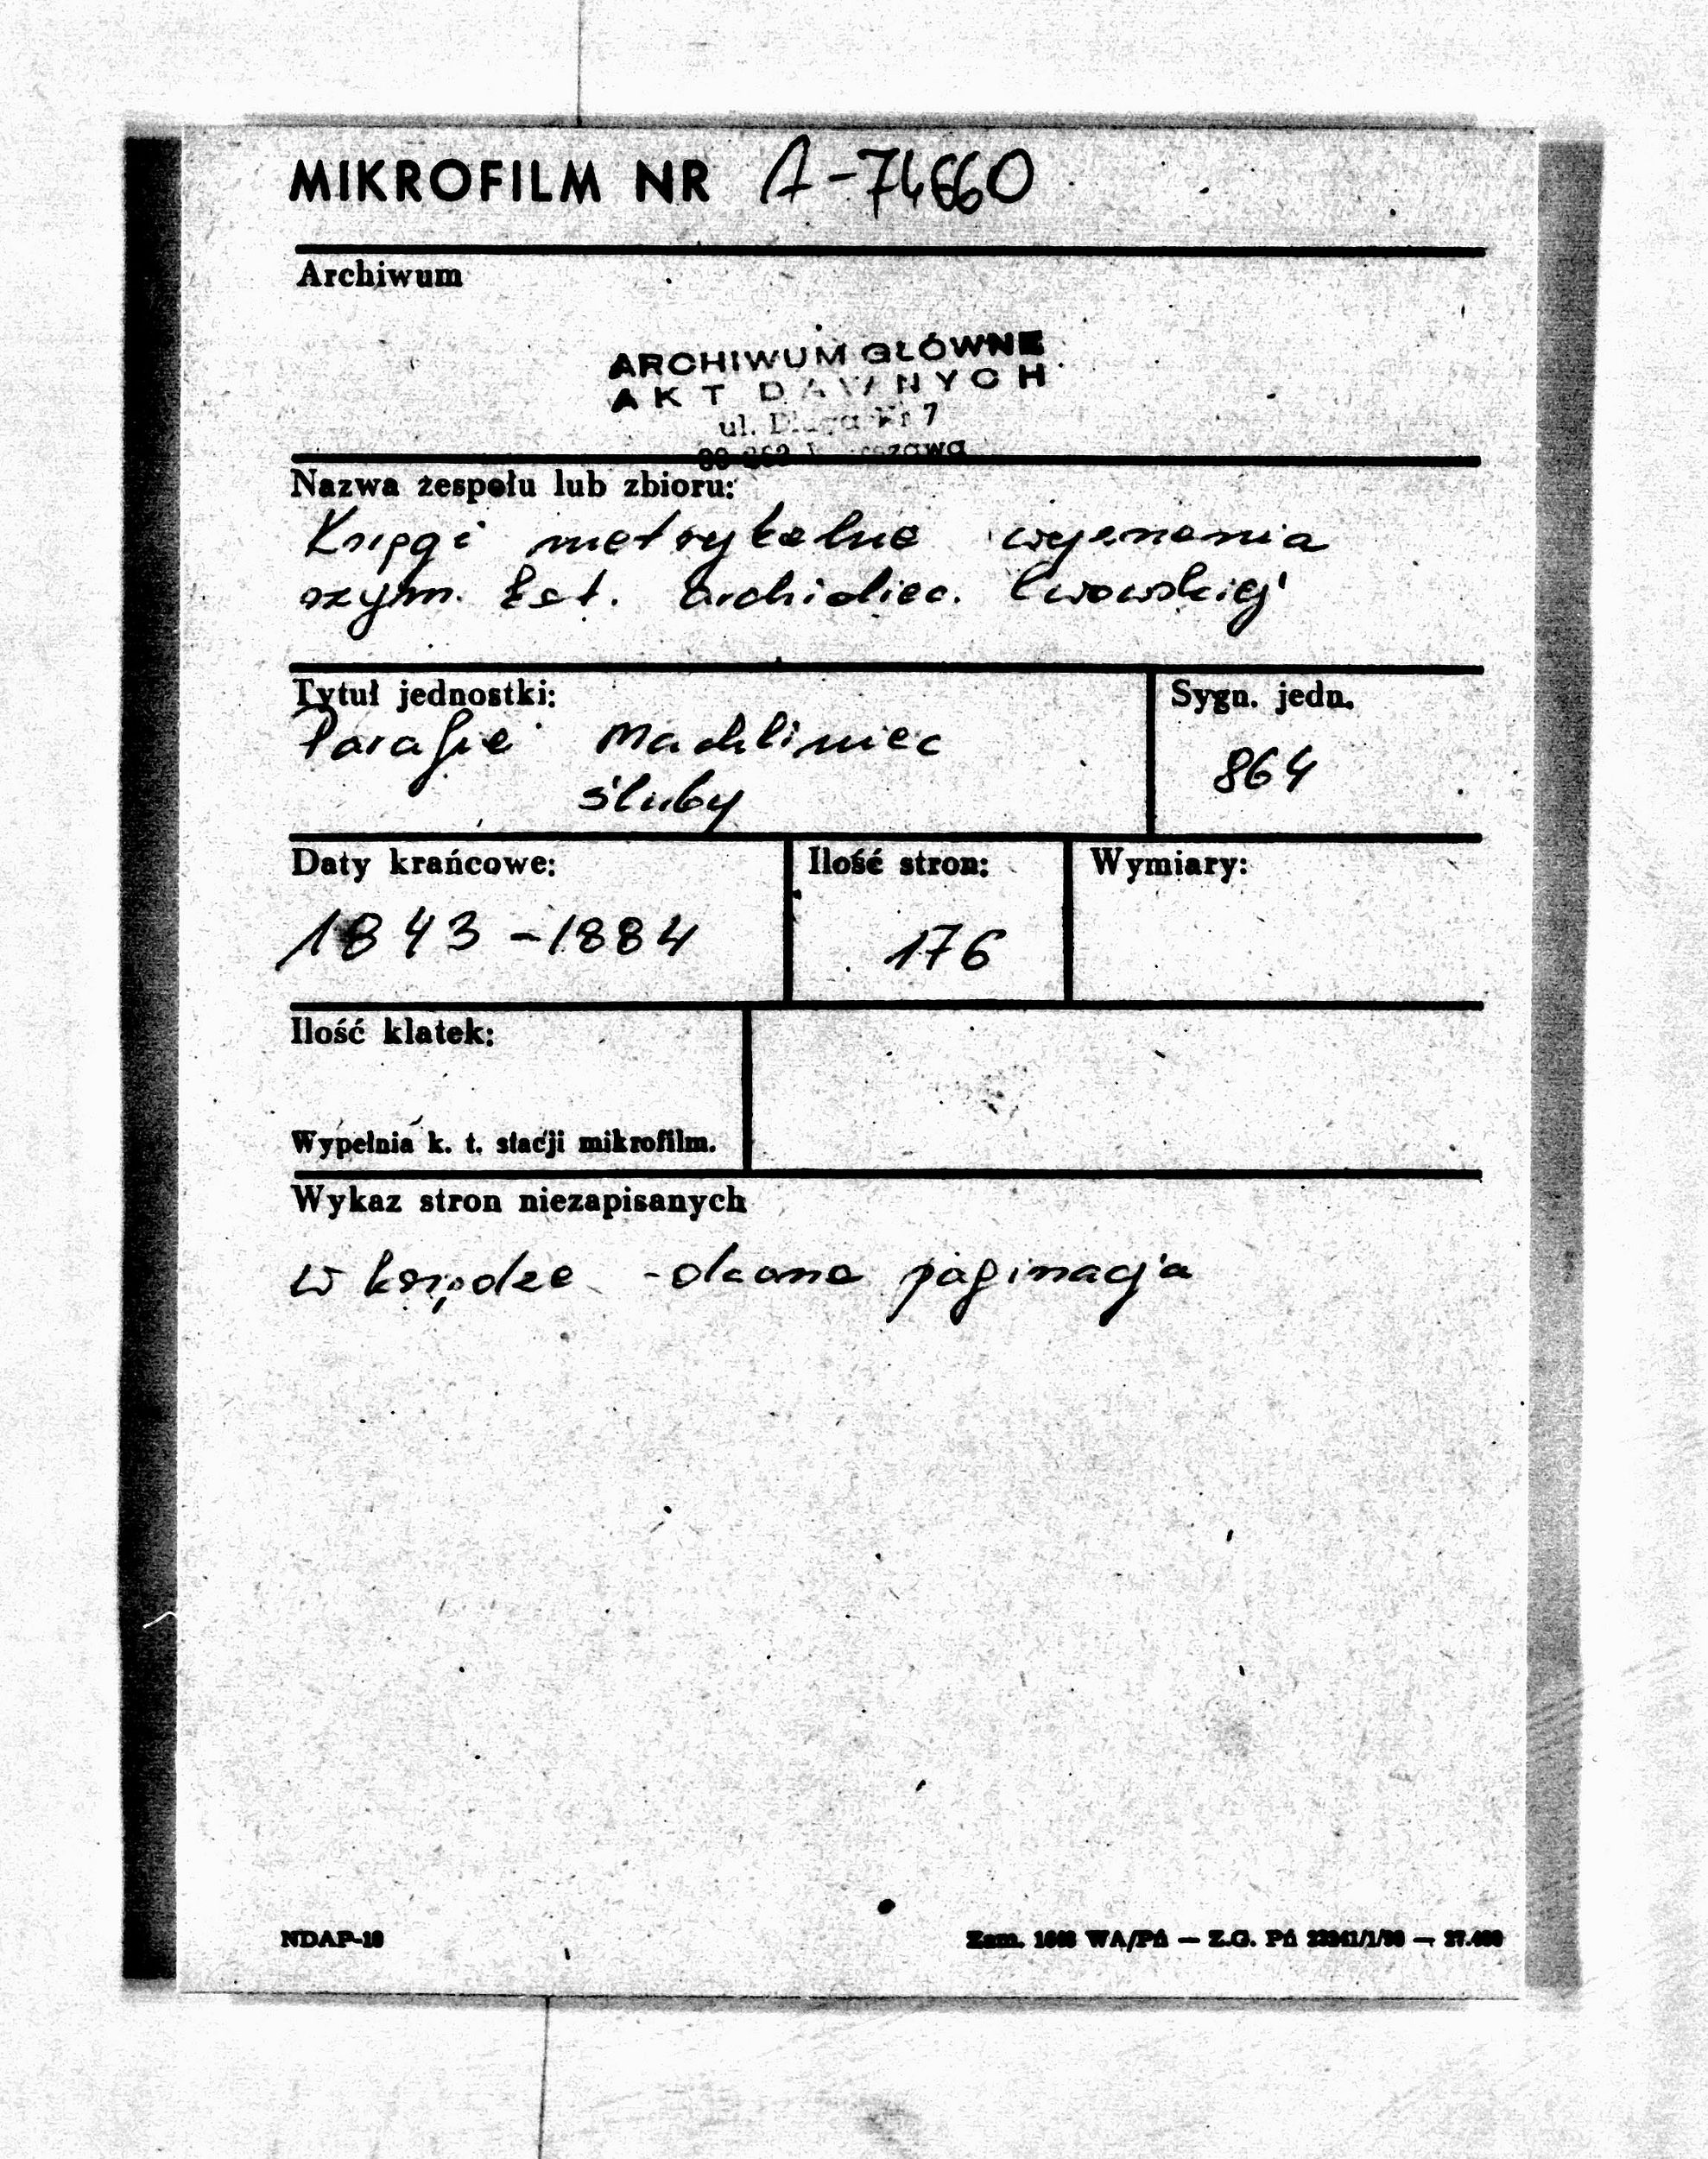 MIKROFILM NR A-74660
Archiwum
ARCHIWUM GŁÓWNE
AKT DAWNYCH
ul. Długa Nr 7
Warszawa
Nazwa zespołu lub zbioru:
Księgi metrykalne wyznania
rzym. kat. archidiec. lwowskiej
Tytuł jednostki:
Sygn. jedn.
Parafie Machliniec
śluby
864
Daty krańcowe:
Ilość stron:
Wymiary:
1843-1884
176
Ilość klatek:
Wypełnia k. t. stacji mikrofilm.
Wykaz stron niezapisanych
w księdze paginacja
NDAP-10
Zam. WA/Pń — Z.G. Pń